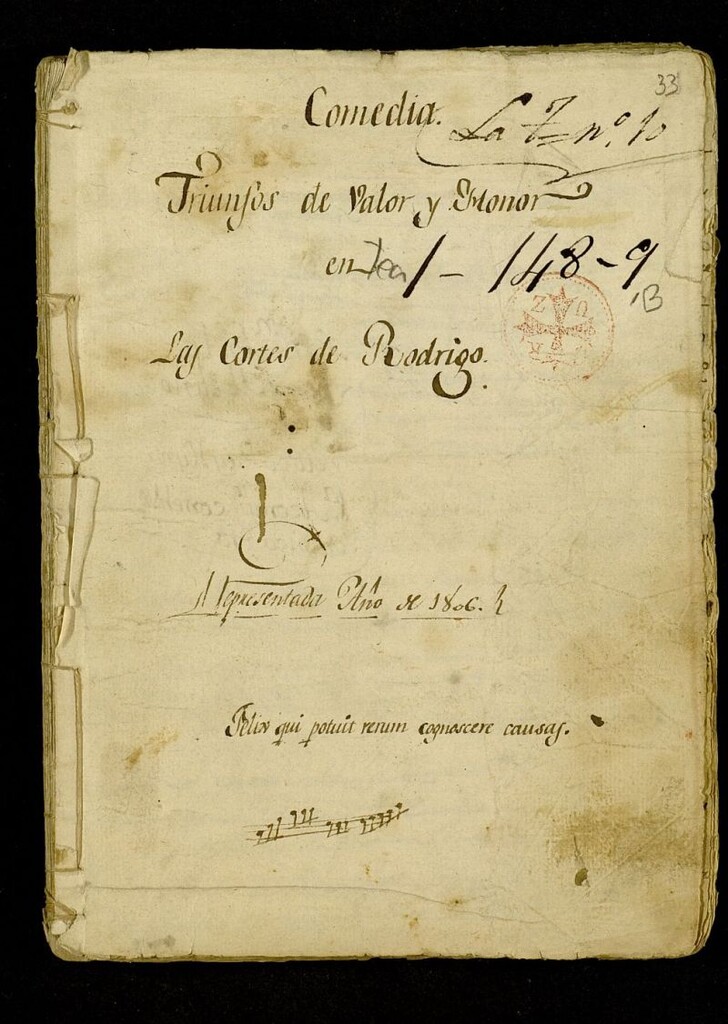 33
Comedia.
La T nº 10
Triunfos de Valor y Honor
en
Tea 1-148-9
,B
Las Cortes de Rodrigo.
Representada Año de 1806.
Felix qui potuit rerum cognoscere causas.